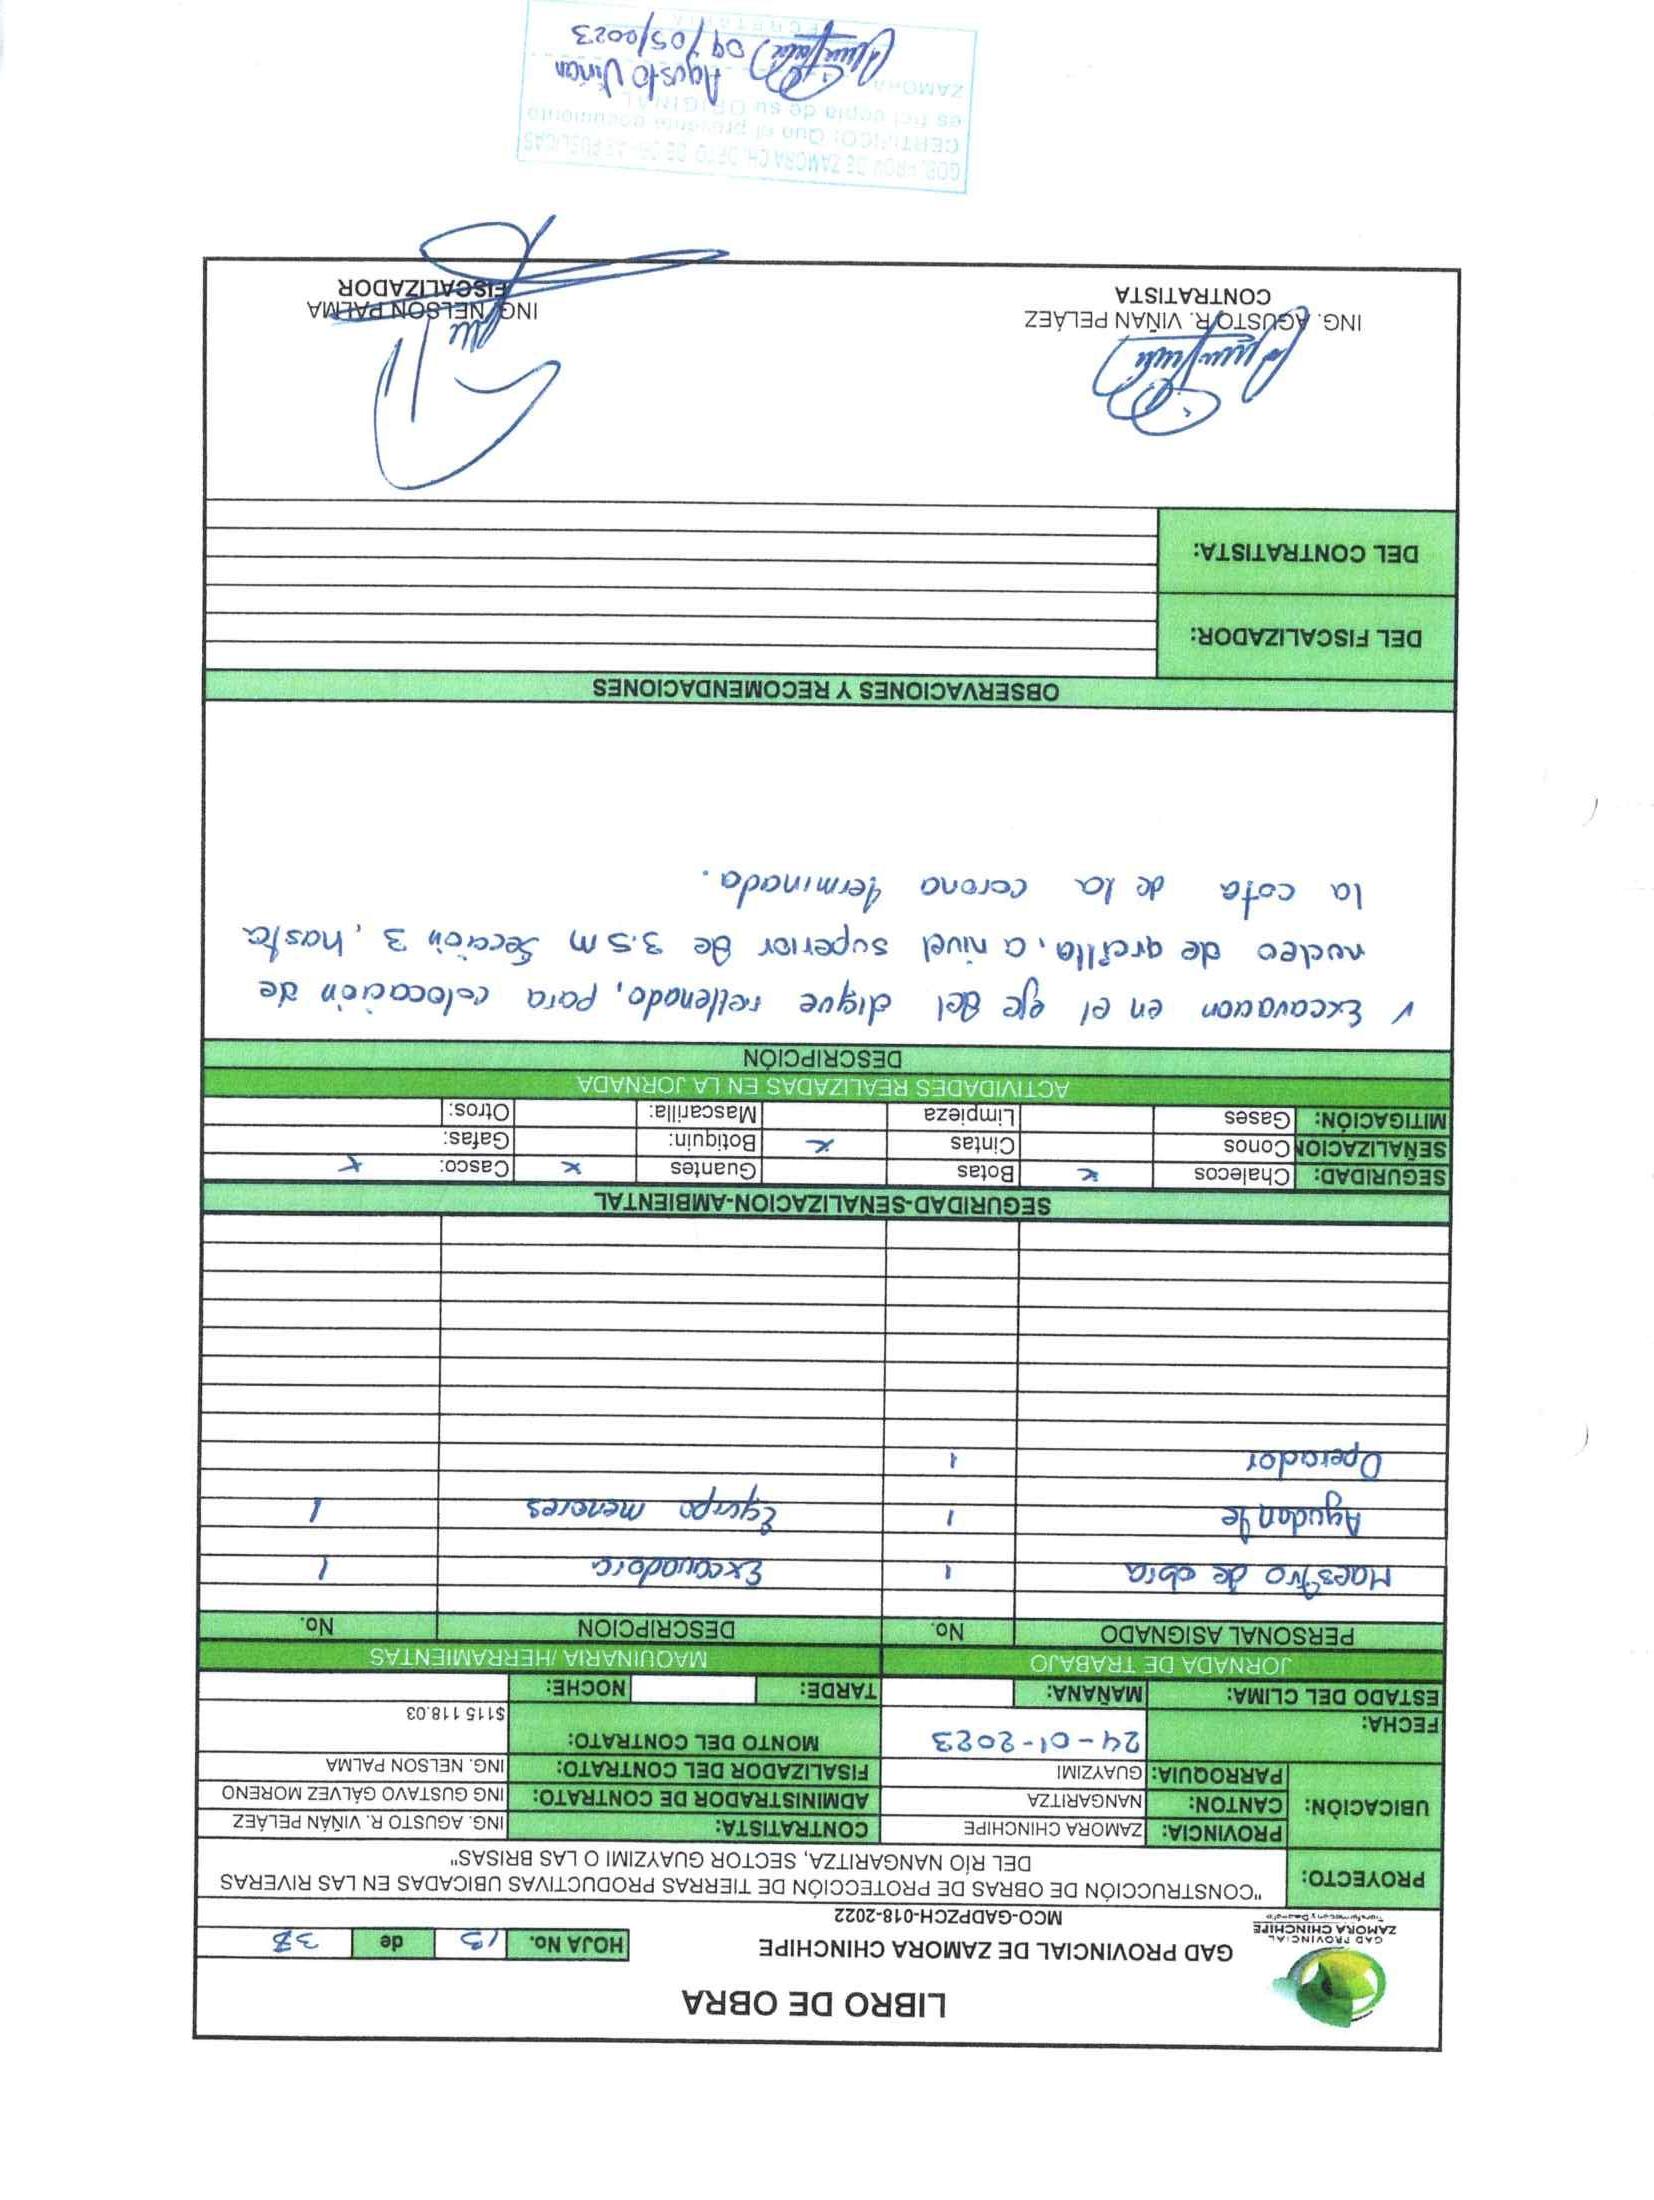 LIBRO DE OBRA
GAD PROVINCIAL
ZAMORA CHINCHIPE
GAD PROVINCIAL DE ZAMORA CHINCHIPE
HOJA No. 13 de 38
MCO-GADPZCH-018-2022
PROYECTO: "CONSTRUCCIÓN DE OBRAS DE PROTECCIÓN DE TIERRAS PRODUCTIVAS UBICADAS EN LAS RIVERAS
DEL RÍO NANGARITZA, SECTOR GUAYZIMI O LAS BRISAS"
UBICACIÓN: PROVINCIA: ZAMORA CHINCHIPE CONTRATISTA: ING. AGUSTO R. VIÑÁN PELÁEZ
CANTON: NANGARITZA ADMINISTRADOR DE CONTRATO: ING GUSTAVO GÁLVEZ MORENO
PARROQUIA: GUAYZIMI FISALIZADOR DEL CONTRATO: ING. NELSON PALMA
FECHA: 24-01-2023 MONTO DEL CONTRATO: $115 118.03
ESTADO DEL CLIMA: MAÑANA: TARDE: NOCHE:
JORNADA DE TRABAJO MAQUINARIA /HERRAMIENTAS
PERSONAL ASIGNADO No. DESCRIPCION No.
Maestro de obra 1 Excavadora 1
Ayudante 1 Equipo menores 1
Operador 1
SEGURIDAD-SENALIZACION-AMBIENTAL
SEGURIDAD: Chalecos x Botas Guantes x Casco: x
SEÑALIZACION Conos Cintas x Botiquin: Gafas:
MITIGACIÓN: Gases Limpieza Mascarilla: Otros:
ACTIVIDADES REALIZADAS EN LA JORNADA
DESCRIPCIÓN
✓ Excavacion en el eje del dique rellenado, para colocación de
nucleo de arcilla, a nivel superior de 3.5 m Sección 3, hasta
la cota de la corona terminada.
OBSERVACIONES Y RECOMENDACIONES
DEL FISCALIZADOR:
DEL CONTRATISTA:
ING. AGUSTO R. VIÑAN PELÁEZ ING. NELSON PALMA
CONTRATISTA FISCALIZADOR
GOB. PROV. DE ZAMORA CH. DPTO DE OBRAS PUBLICAS
CERTIFICO: Que el presente documento
es fiel copia de su ORIGINAL
ZAMORA
Agusto Viñan
09/05/2023
SECRETARIA